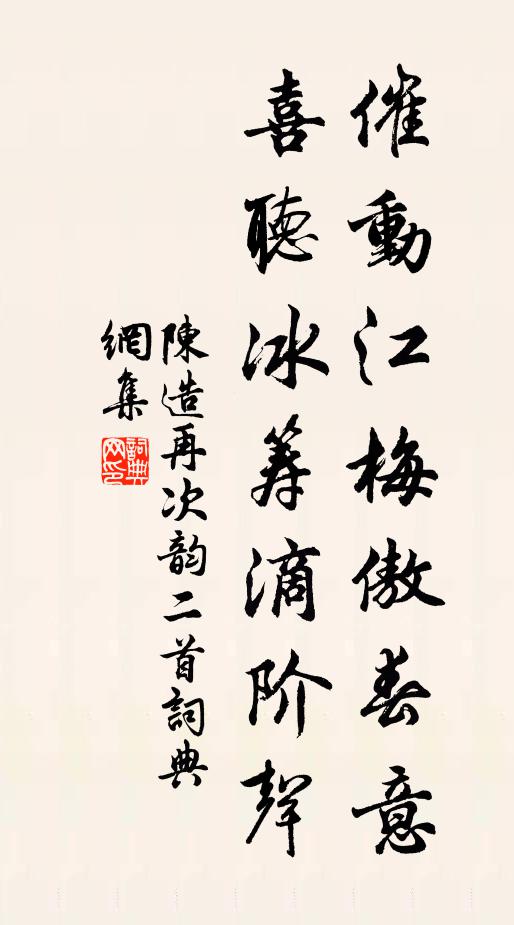 催動江梅傲春意
喜聽冰筹滴阶聲
陳造再次韵二首詞典
網集
詞典網印